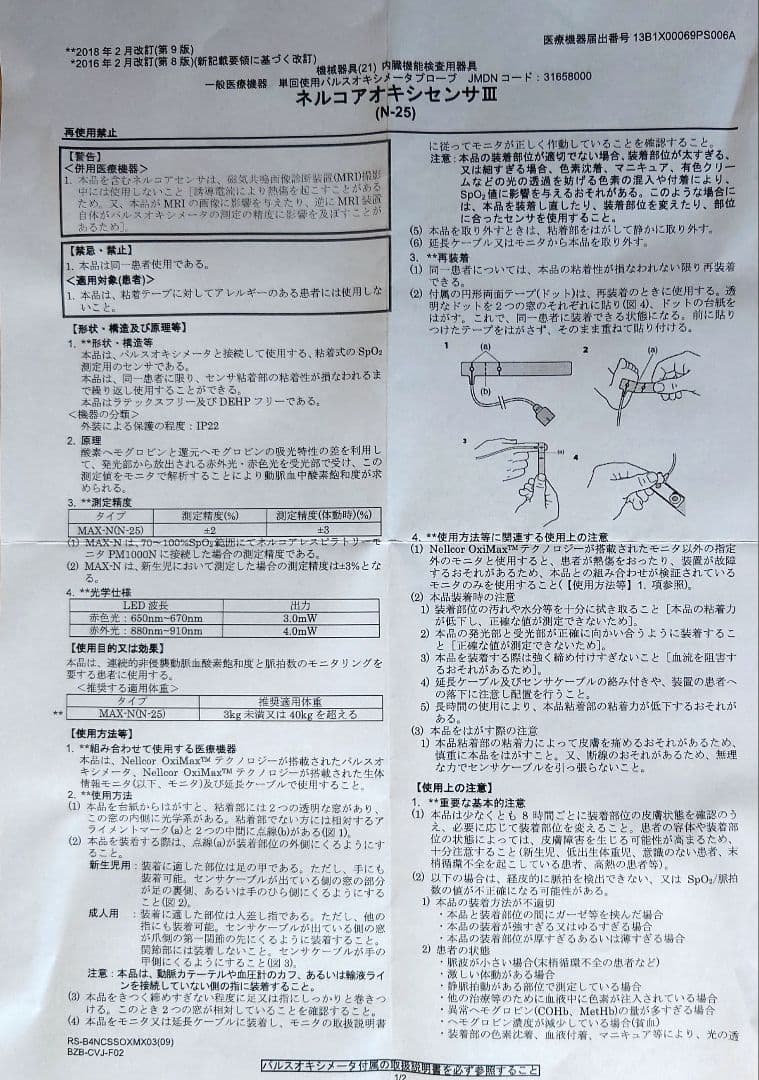 医療機器届出番号 13B1X00069PS006A
**2018 年 2 月改訂(第 9 版)
*2016 年 2 月改訂(第 8 版)(新記載要領に基づく改訂)
機械器具(21) 内臓機能検査用器具
一般医療機器 単回使用パルスオキシメータプローブ JMDN コード：31658000
ネルコアオキシセンサⅢ
(N-25)
再使用禁止
【警告】
<併用医療機器>
1. 本品を含むネルコアセンサは、磁気共鳴画像診断装置(MRI)撮影
中には使用しないこと［誘導電流により熱傷を起こすことがある
ため。又、本品が MRI の画像に影響を与えたり、逆に MRI 装置
自体がパルスオキシメータの測定の精度に影響を及ぼすことが
あるため］。
【禁忌・禁止】
1. 本品は同一患者使用である。
<適用対象(患者)>
1. 本品は、粘着テープに対してアレルギーのある患者には使用しな
いこと。
【形状・構造及び原理等】
1. **形状・構造等
本品は、パルスオキシメータと接続して使用する、粘着式の SpO2
測定用のセンサである。
本品は、同一患者に限り、センサ粘着部の粘着性が損なわれるま
で繰り返し使用することができる。
本品はラテックスフリー及び DEHP フリーである。
<機器の分類>
外装による保護の程度：IP22
2. 原理
酸素ヘモグロビンと還元ヘモグロビンの吸光特性の差を利用し
て、発光部から放出される赤外光・赤色光を受光部で受け、この
測定値をモニタで解析することにより動脈血中酸素飽和度が求
められる。
3. **測定精度
タイプ 測定精度(%) 測定精度(体動時)(%)
MAX-N(N-25) ±2 ±3
(1) MAX-N は、70～100%SpO2 範囲にてネルコアレスピラトリーモ
ニタ PM1000N に接続した場合の測定精度である。
(2) MAX-N は、新生児において測定した場合の測定精度は±3%とな
る。
4. **光学仕様
LED 波長 出力
赤色光：650nm~670nm 3.0mW
赤外光：880nm~910nm 4.0mW
【使用目的又は効果】
本品は、連続的非侵襲動脈血酸素飽和度と脈拍数のモニタリングを
要する患者に使用する。
<推奨する適用体重>
タイプ 推奨適用体重
** MAX-N(N-25) 3kg 未満又は 40kg を超える
【使用方法等】
1. **組み合わせて使用する医療機器
本品は、Nellcor OxiMax™ テクノロジーが搭載されたパルスオ
キシメータ、Nellcor OxiMax™ テクノロジーが搭載された生体
情報モニタ(以下、モニタ)及び延長ケーブルで使用すること。
2. **使用方法
(1) 本品を台紙からはがすと、粘着部には 2 つの透明な窓があり、
この窓の内側に光学系がある。粘着部でない方には相対するア
ライメントマーク(a)と 2 つの中間に点線(b)がある(図 1)。
(2) 本品を装着する際は、点線(a)が装着部位の外側にくるようにす
ること。
新生児用：装着に適した部位は足の甲である。ただし、手にも
装着可能。センサケーブルが出ている側の窓の部分
が足の裏側、あるいは手のひら側にくるようにするこ
と(図 2)。
成人用 ：装着に適した部位は人差し指である。ただし、他の
指にも装着可能。センサケーブルが出ている側の窓
が爪側の第一関節の先にくるように装着すること。
関節部には装着しないこと。センサケーブルが手の
甲側にくるようにすること(図 3)。
注意：本品は、動脈カテーテルや血圧計のカフ、あるいは輸液ライ
ンを接続していない側の指に装着すること。
(3) 本品をきつく締めすぎない程度に足又は指にしっかりと巻きつ
ける。このとき 2 つの窓が相対していることを確認すること。
(4) 本品をモニタ又は延長ケーブルに装着し、モニタの取扱説明書
RS-B4NCSSOXMX03(09)
BZB-CVJ-F02
に従ってモニタが正しく作動していることを確認すること。
注意：本品の装着部位が適切でない場合、装着部位が太すぎる、
又は細すぎる場合、色素沈着、マニキュア、有色クリ
ームなどの光の透過を妨げる色素の混入や付着により、
SpO2 値に影響を与えるおそれがある。このような場合に
は、本品を装着し直したり、装着部位を変えたり、部位
に合ったセンサを使用すること。
(5) 本品を取り外すときは、粘着部をはがして静かに取り外す。
(6) 延長ケーブル又はモニタから本品を取り外す。
3. **再装着
(1) 同一患者については、本品の粘着性が損なわれない限り再装着
できる。
(2) 付属の円形両面テープ(ドット)は、再装着のときに使用する。透
明なドットを 2 つの窓のそれぞれに貼り(図 4)、ドットの台紙を
はがす。これで、同一患者に装着できる状態になる。前に貼り
つけたテープをはがさず、そのまま重ねて貼り付ける。
1 (a) (b)
2 (a)
3 (a)
4
4. **使用方法等に関連する使用上の注意
(1) Nellcor OxiMax™ テクノロジーが搭載されたモニタ以外の指定
外のモニタと使用すると、患者が熱傷をおったり、装置が故障
するおそれがあるため、本品との組み合わせが検証されている
モニタのみを使用すること(【使用方法等】1. 項参照)。
(2) 本品装着時の注意
1) 装着部位の汚れや水分等を十分に拭き取ること［本品の粘着力
が低下し、正確な値が測定できないため］。
2) 本品の発光部と受光部が正確に向かい合うように装着するこ
と［正確な値が測定できないため］。
3) 本品を装着する際は強く締め付けすぎないこと［血流を阻害す
るおそれがあるため］。
4) 延長ケーブル及びセンサケーブルの絡み付きや、装置の患者へ
の落下に注意し配置を行うこと。
5) 長時間の使用により、本品粘着部の粘着力が低下するおそれが
ある。
(3) 本品をはがす際の注意
1) 本品粘着部の粘着力によって皮膚を痛めるおそれがあるため、
慎重に本品をはがすこと。又、断線のおそれがあるため、無理
な力でセンサケーブルを引っ張らないこと。
【使用上の注意】
1. **重要な基本的注意
(1) 本品は少なくとも 8 時間ごとに装着部位の皮膚状態を確認のう
え、必要に応じて装着部位を変えること。患者の容体や装着部
位の状態によっては、皮膚障害を生じる可能性が高まるため、
十分注意すること(新生児、低出生体重児、意識のない患者、末
梢循環不全を起こしている患者、高熱の患者等)。
(2) 以下の場合は、経皮的に脈拍を検出できない、又は SpO2/脈拍
数の値が不正確になる可能性がある。
1) 本品の装着方法が不適切
・本品と装着部位の間にガーゼ等を挟んだ場合
・本品の装着が強すぎる又はゆるすぎる場合
・本品の装着部位が厚すぎるあるいは薄すぎる場合
2) 患者の状態
・脈波が小さい場合(末梢循環不全の患者など)
・激しい体動がある場合
・静脈拍動がある部位で測定している場合
・他の治療等のために血液中に色素が注入されている場合
・異常ヘモグロビン(COHb, MetHb)の量が多すぎる場合
・ヘモグロビン濃度が減少している場合(貧血)
・装着部の色素沈着、血液付着、マニキュア等により、光の透
パルスオキシメータ付属の取扱説明書を必ず参照すること
1/2